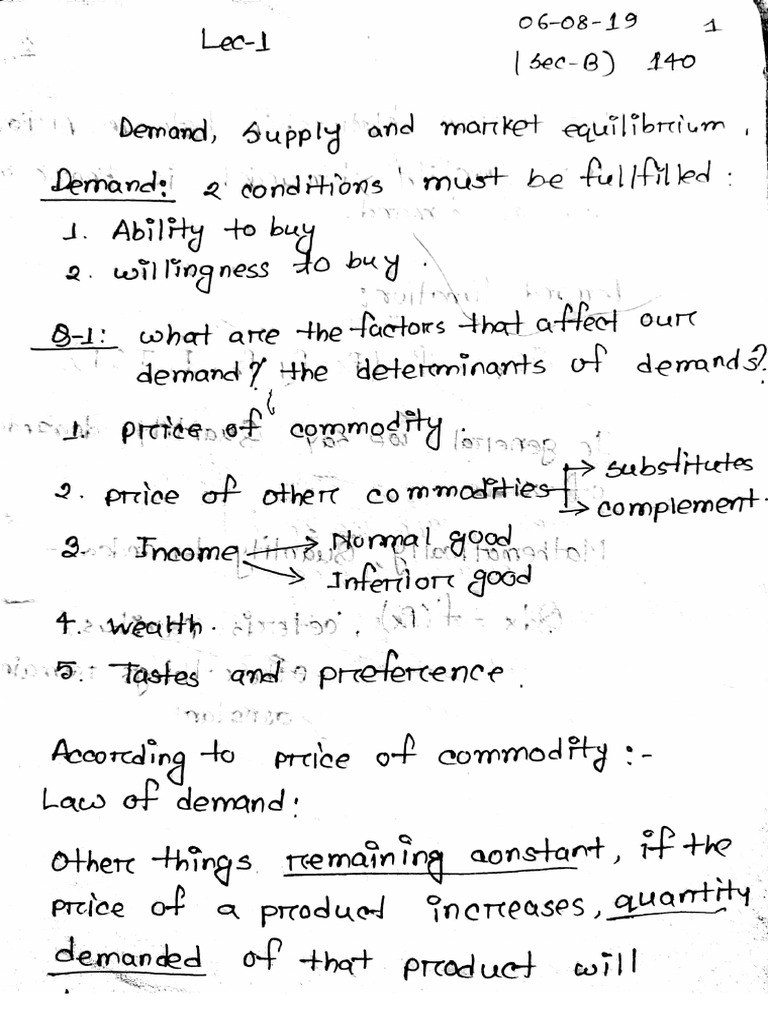 Lec-1
06-08-19 1
(Sec-B) 140
Demand, supply and market equilibrium.
Demand: 2 conditions must be fullfilled:
1. Ability to buy
2. willingness to buy.
Q-1: what are the factors that affect our
demand? / the determinants of demands?
1. price of commodity.
2. price of other commodities → substitutes
→ complement.
3. Income → Normal good
→ Inferior good
4. wealth.
5. Tastes and preference.
According to price of commodity :-
Law of demand:
Other things remaining constant, if the
price of a product increases, quantity
demanded of that product will